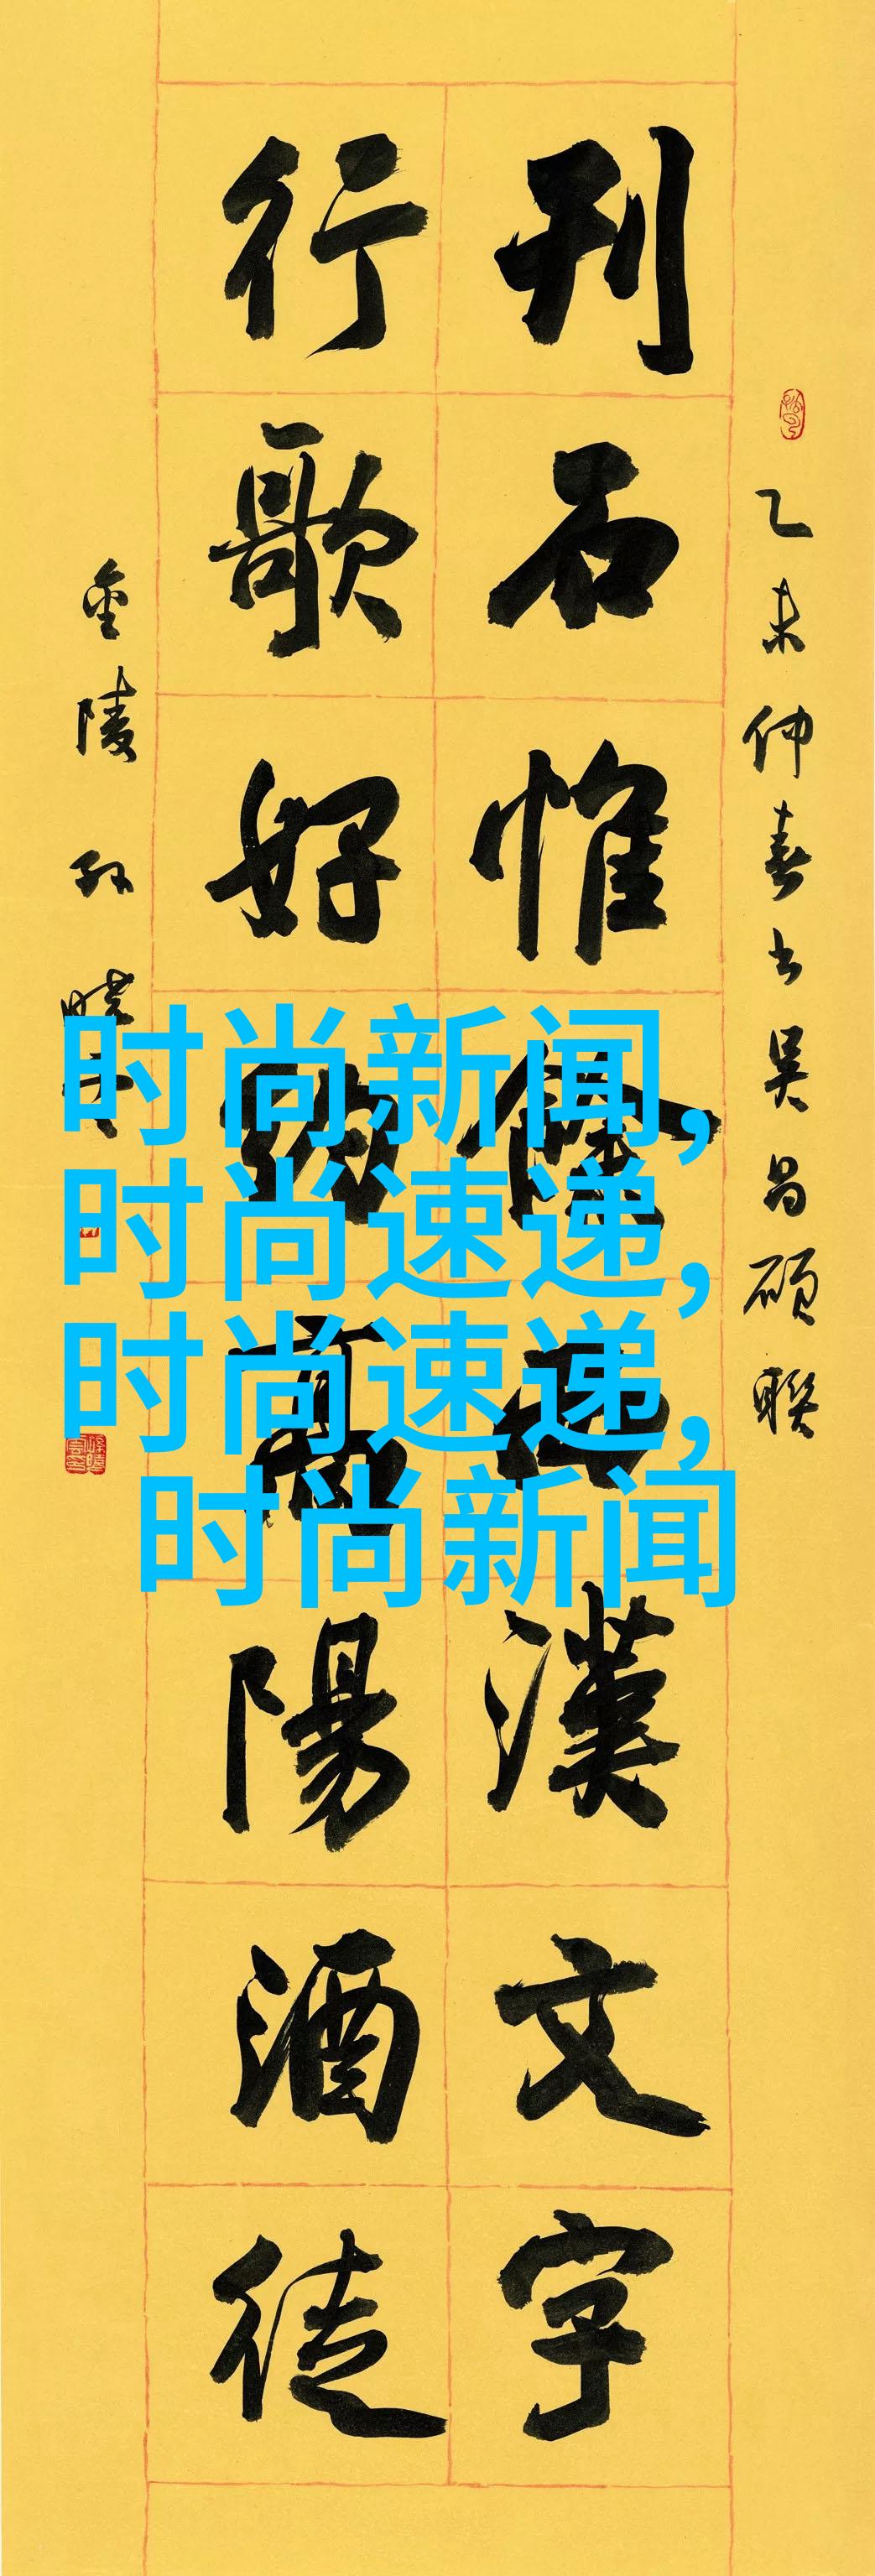 乙未仲春书吴昌碩聯
刊石惟餘西漢文字
行歌好高陽酒徒
金陵孙曉云
时尚新闻,
时尚速递,
时尚速递,
时尚新闻